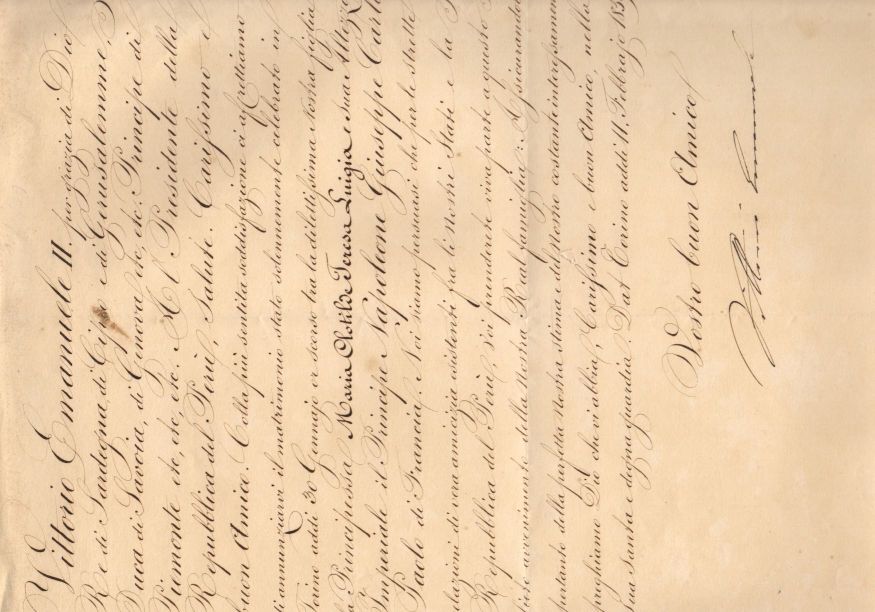 Vittorio Emanuele II. per grazia di Dio
Re di Sardegna, di Cipro e di Gerusalemme,
Duca di Savoia, di Genova etc, etc. Principe di
Piemonte etc, etc, etc. Al Presidente della
Repubblica del Perù, Salute. Carissimo e
buon Amico. Colla più sentita soddisfazione ci affrettiamo
di annunziarvi il matrimonio stato solennemente celebrato in
Torino addì 30 Gennajo or scorso tra la dilettissima Nostra figlia
la Principessa Maria Clotilde Teresa Luigia e Sua Altezza
Imperiale il Principe Napoleone Giuseppe Carlo
Paolo di Francia. Noi siamo persuasi che per le strette
relazioni di vera amicizia esistenti fra li Nostri Stati e la
Repubblica del Perù, voi prenderete viva parte a questo
avvenimento della nostra Real famiglia. Assicurandovi
pertanto della perfetta Nostra stima e del Nostro costante interessamento
preghiamo Dio che vi abbia, Carissimo e buon Amico, nella
sua santa e degna guardia. Dat. Torino addì 11. Febbrajo 185
Vostro buon Amico
Vittorio Emanuele